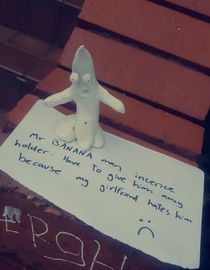 Mr BANANA man incence
holder. Have to give him away
because my girlfriend hates him
:(